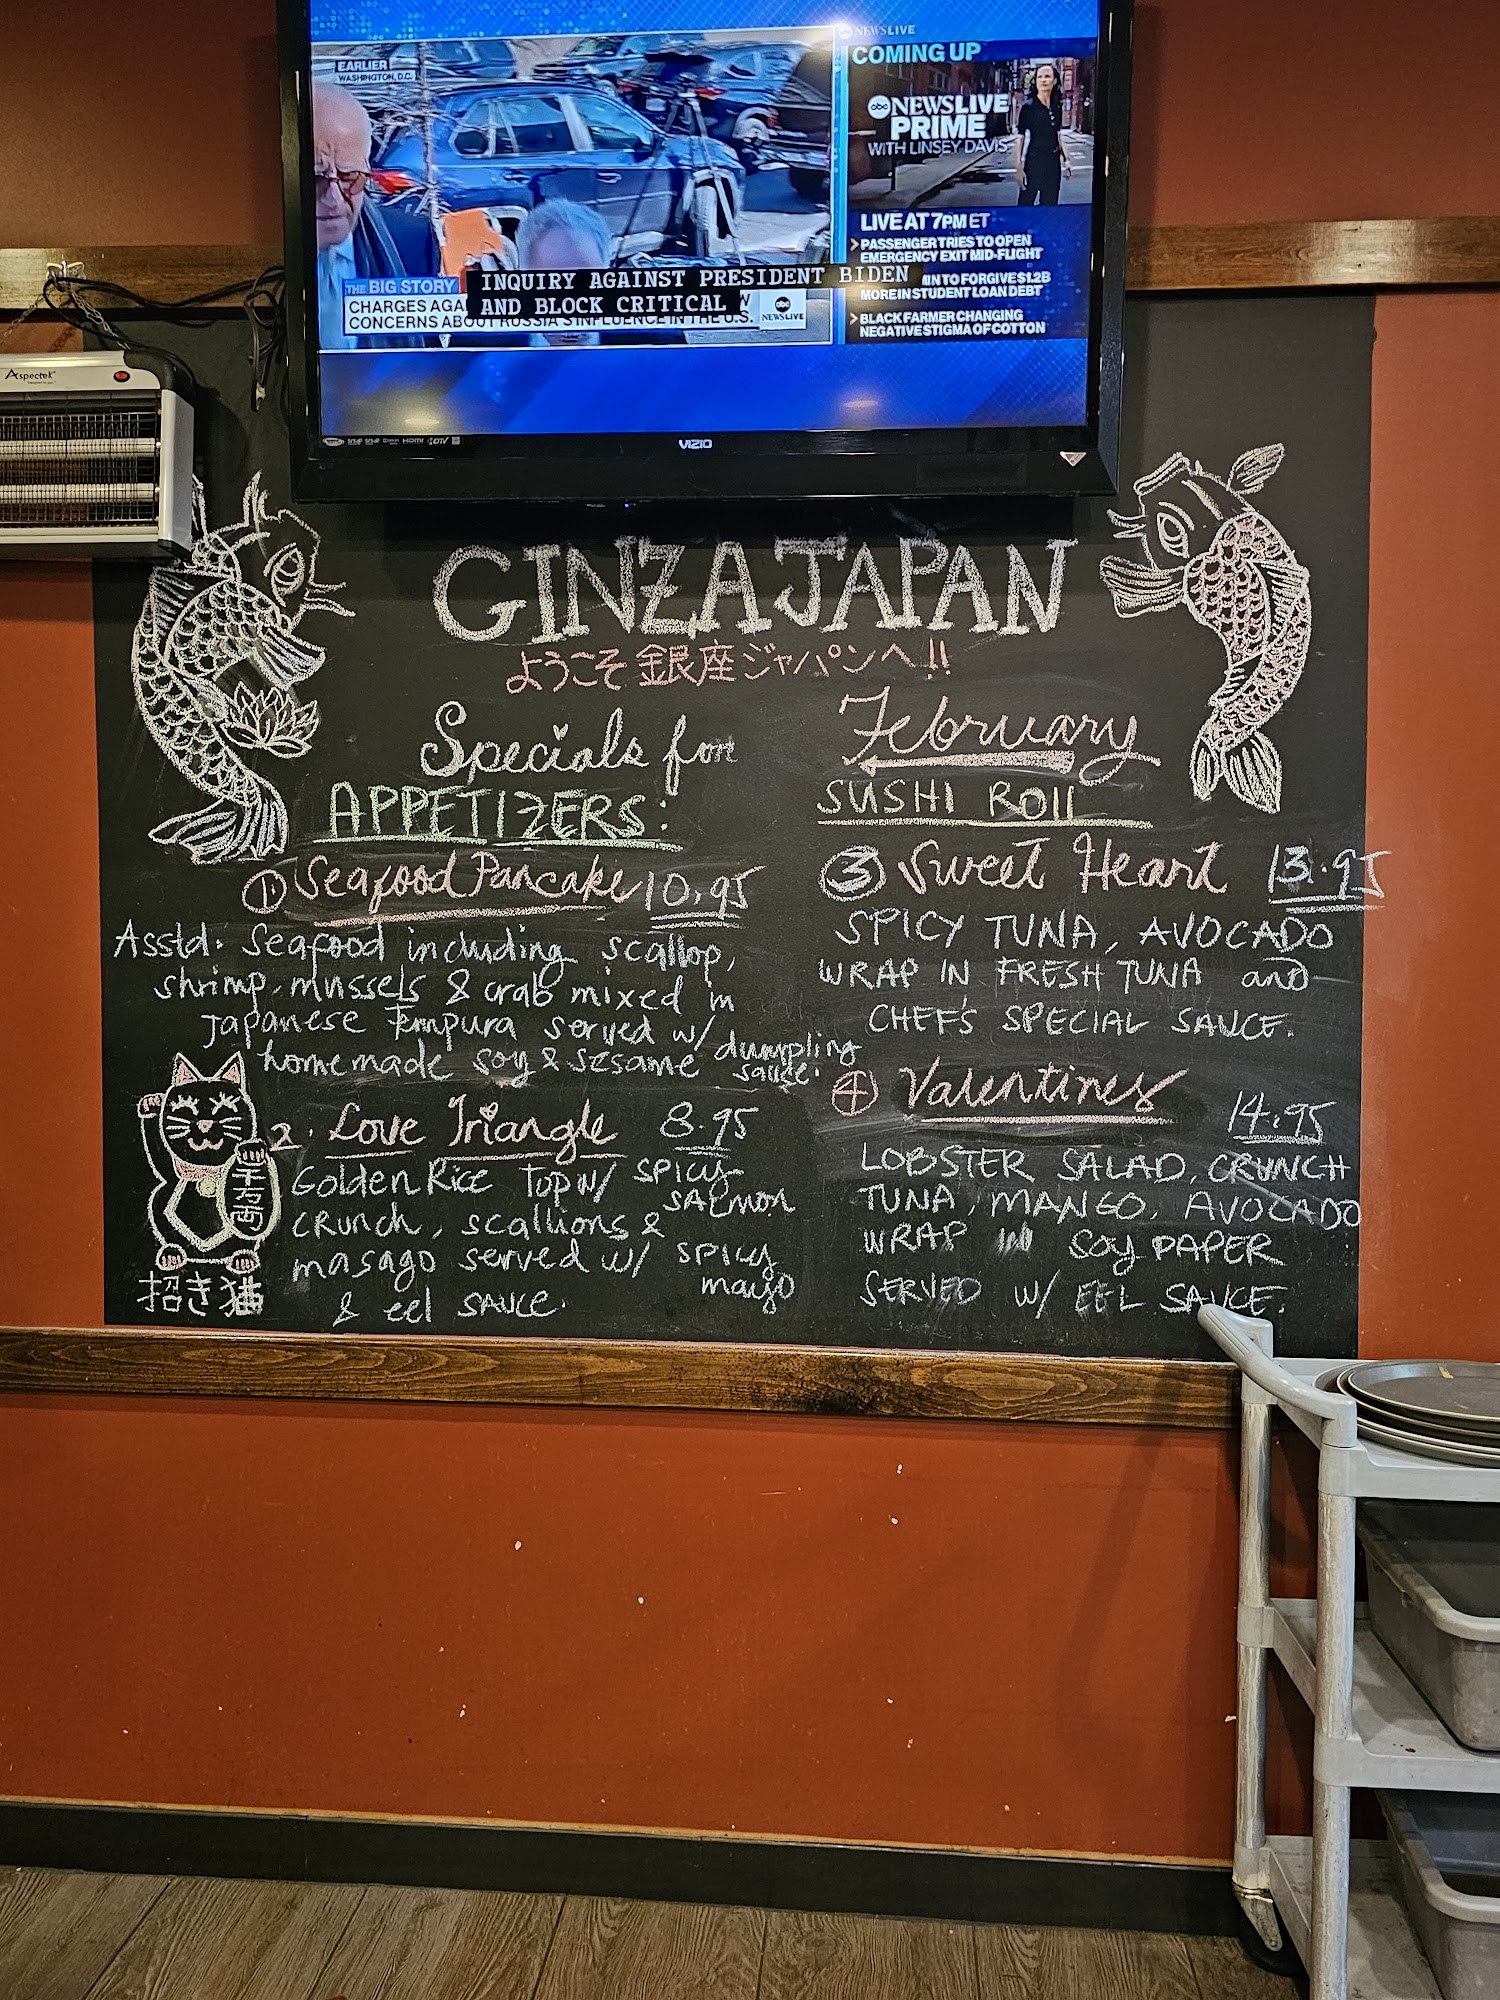 EARLIER
WASHINGTON, D.C.
abc NEWS LIVE
COMING UP
abc NEWSLIVE
PRIME
WITH LINSEY DAVIS
LIVE AT 7PM ET
PASSENGER TRIES TO OPEN
EMERGENCY EXIT MID-FLIGHT
IN TO FORGIVE $1.2B
MORE IN STUDENT LOAN DEBT
BLACK FARMER CHANGING
NEGATIVE STIGMA OF COTTON
THE BIG STORY
INQUIRY AGAINST PRESIDENT BIDEN
AND BLOCK CRITICAL
CHARGES AGA
CONCERNS ABOUT RUSSIA'S INFLUENCE IN THE U.S.
abc
NEWS LIVE
HDMI
VIZIO
Aspectek
GINZA JAPAN
ようこそ銀座ジャパンへ!!
Specials for
APPETIZERS:
① Seafood Pancake 10.95
Asstd. Seafood including scallop,
shrimp, mussels & crab mixed in
Japanese Tempura served w/
homemade soy & sesame dumpling
sauce.
2. Love Triangle 8.95
Golden Rice top w/ spicy
salmon
crunch, scallions &
masago served w/ spicy
mayo
& eel sauce.
千万両
招き猫
February
SUSHI ROll
③ Sweet Heart 13.95
SPICY TUNA, AVOCADO
WRAP IN FRESH TUNA and
CHEF'S SPECIAL SAUCE.
④ Valentines 14.95
LOBSTER SALAD, CRUNCH
TUNA, MANGO, AVOCADO
WRAP IN Soy PAPER
SERVED w/ EEL SAUCE.